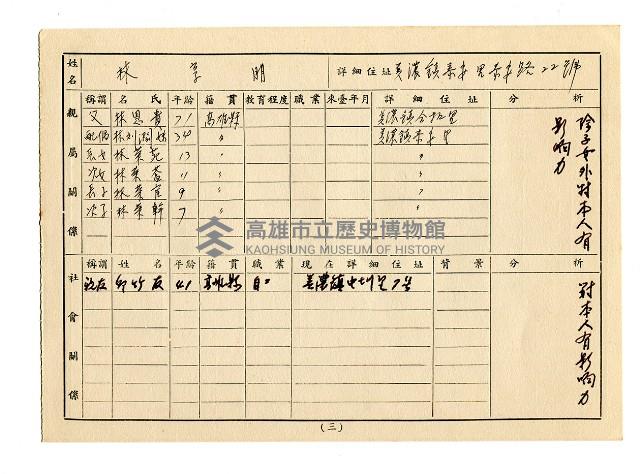 姓名 林 享 明 詳細住址 美濃鎮泰安里泰安路22號
親屬關係
稱謂 名氏 年齡 籍貫 教育程度 職業 來臺年月 詳細住址 分析
父 林恩貴 71 高雄縣 美濃鎮合和里
配偶 林刘 34 〃 美濃鎮泰安里
長女 林葉 13 〃 〃
次女 林葉 11 〃 〃
長子 林葉 9 〃 〃
次子 林葉幹 7 〃 〃
除子女外對本人有
影响力
高雄市立歷史博物館
KAOHSIUNG MUSEUM OF HISTORY
社會關係
稱謂 姓名 年齡 籍貫 職業 現在詳細住址 背景 分析
朋友 竹 41 高雄縣 自 美濃鎮中圳里
對本人有影响力
(三)